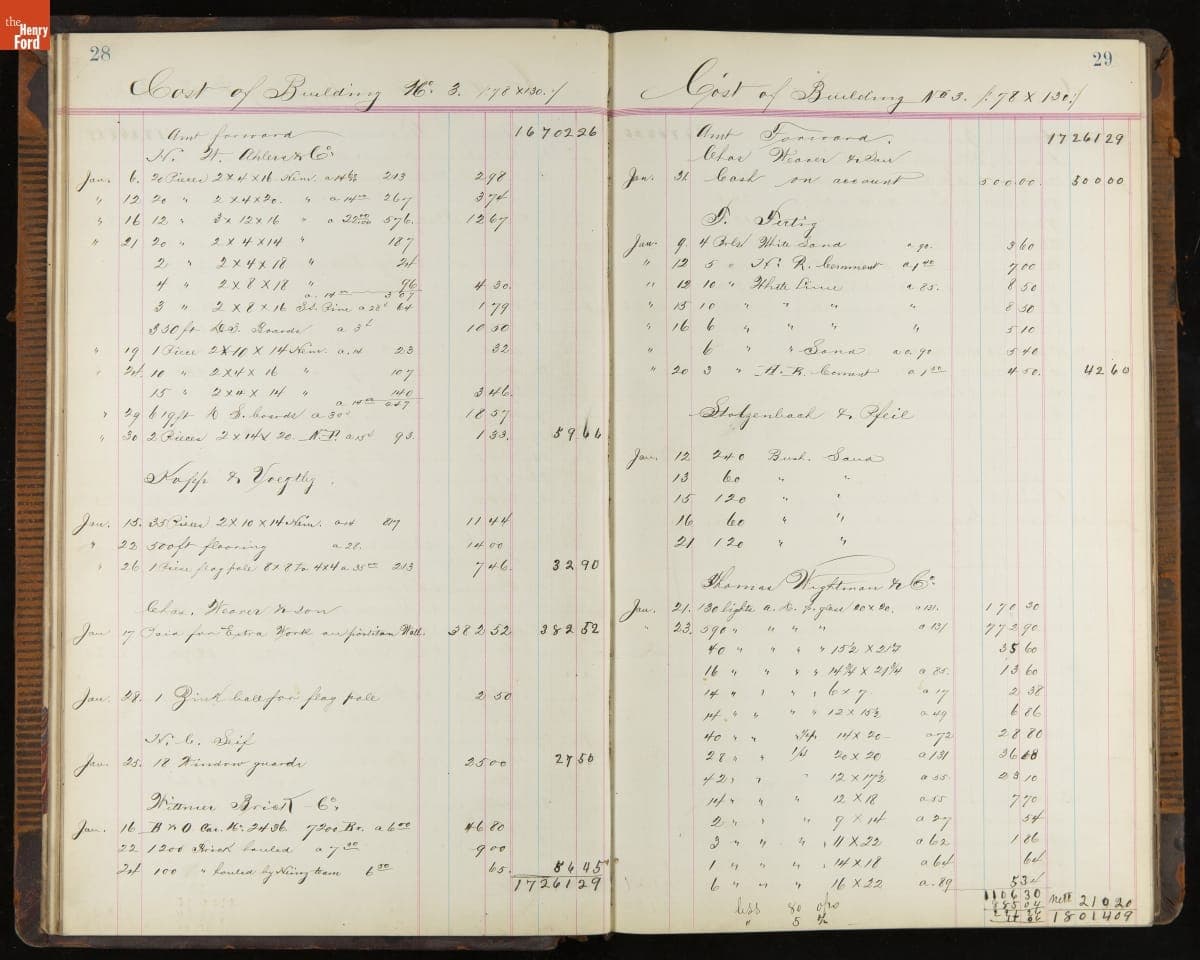 the Henry Ford
28
Cost of Building No. 3. /78 x 130./
Amt forward 16702 26
H. W. Ahlers & Co.
Jan. 6. 20 Pieces 2 x 4 x 16 Hem. a 14 213 2 98
" 12 20 " 2 x 4 x 20. " a 14 267 3 74
" 16 12 " 3 x 12 x 16 " a 22 576. 12 67
" 21 20 " 2 x 4 x 14 " 187
2 " 2 x 4 x 18 " 24
4 " 2 x 8 x 18 " 96
a. 14 307 4 30.
3 " 2 x 8 x 16 Pine a 28 64 1 79
350 ft D.S. Boards a 3 10 50
" 19 1 Piece 2 x 10 x 14 Hem. a. 14 23 32
" 24. 10 " 2 x 4 x 16 " 107
15 " 2 x 4 x 14 " 140 3 46.
a 14 247
" 29 619 ft D.S. boards a 30 18 57
" 30 2 Pieces 2 x 14 x 20. a 93. 1 33. 59 66
Kopp & Voegtly.
Jan. 15. 35 Pieces 2 x 10 x 14 Hem. a 14 817 11 44
" 22 500 ft flooring a 28. 14 00
" 26 1 Piece flag pole 8 x 8 to 4 x 4 a 35 213 7 46. 32 90
Chas. Weaver & son
Jan 17 Paid for Extra Work on partition Wall. 382 52 382 52
Jan. 28. 1 Zink ball for flag pole 2 50
H. C. Seif
Jan. 25. 18 Window guards 25 00 27 50
Wittmer Brick Co.
Jan. 16 B & O Car. No. 2436 7200 Br. a 6 46 80
22 1200 Brick hauled a 7 9 00
24 100 " hauled by team 6 65. 56 45
17261 29
29
Cost of Building No 3. /78 x 130./
Amt Forward. 17261 29
Chas Weaver & Son
Jan. 31. Cash on account 500.00. 500 00
F. Fertig
Jan. 9. 4 Brls White Sand a 90. 3 60
" 12 5 " N. R. Cemment a 1 7 00
" 12 10 " White Lime a 85. 8 50
" 15 10 " " " " 8 50
" 16 6 " " " " 5 10
" 6 " " Sand a 90 5 40
" 20 3 " Cement a 1 4 50. 42 60
Stolzenbach & Pfeil
Jan. 12 240 Bush. Sand
13 60 " "
15 120 " "
16 60 " "
21 120 " "
Thomas Wightman & Co.
Jan. 21. 130 lights glass 20 x 20. a 131. 170 30
" 23. 590 " " " " a 131 772 90
40 " " " " 15½ x 21½ 35 60
16 " " " " 14¾ x 21¾ a 85. 13 60
14 " " " " 6 x 7 a 17 2 38
14 " " " " 12 x 15½ a 49 6 86
40 " " 14 x 20 a 72 28 80
28 " " 20 x 20 a 131 36 68
42 " " " 12 x 17½ a 55 23 10
14 " " " 12 x 18 a 55 7 70
2 " " " 9 x 14 a 27 54
3 " " " 11 x 22 a 62 1 86
1 " " " 14 x 18 a 64 64
6 " " " 16 x 22 a. 89 5 34
1106 30
less 80 o/o 885 04 nett 210 20
" 5 % 18014 09